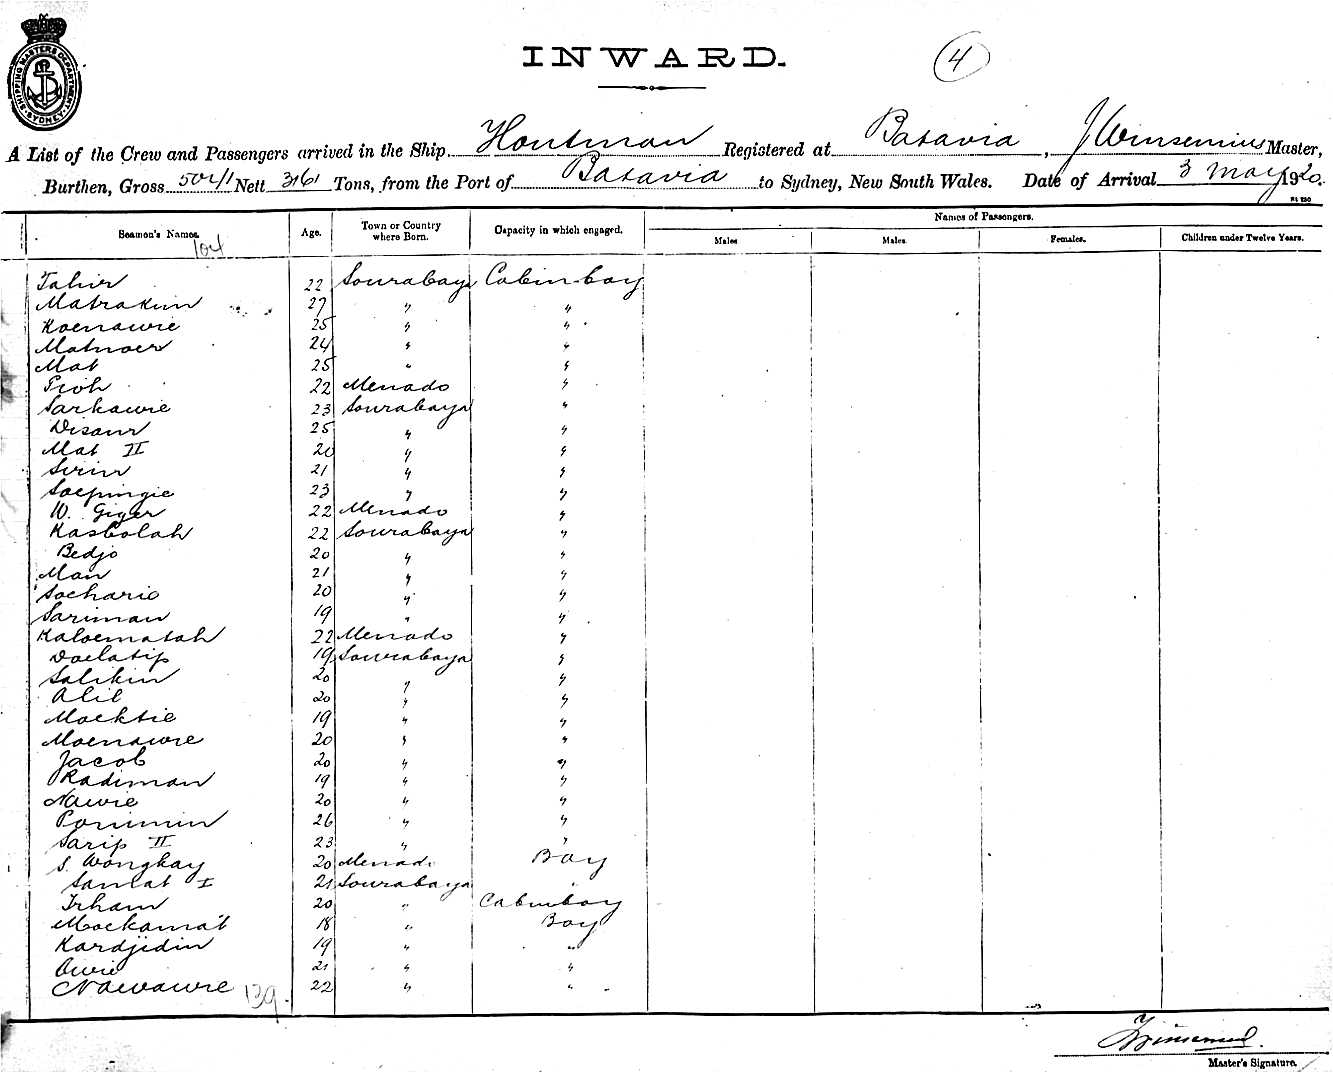 SHIPPING MASTERS DEPARTMENT SYDNEY
INWARD.
4
A List of the Crew and Passengers arrived in the Ship Houtman Registered at Batavia, J Winsemius Master,
Burthen, Gross 5041 Nett 3161 Tons, from the Port of Batavia to Sydney, New South Wales. Date of Arrival 3 May 1920.
Names of Passengers.
Seamen's Names. Age. Town or Country where Born. Capacity in which engaged. Males Males. Females. Children under Twelve Years.
104
Tahir 22 Sourabaya Cabin boy
Matrakim 27 " "
Koenawie 25 " "
Matnoer 24 " "
Mat 25 " "
Pioh 22 Menado "
Sarkawie 23 Sourabaya "
25 " "
Mat II 20 " "
Sirin 21 " "
Soepingie 23 " "
W. Giger 22 Menado "
Kasbolah 22 Sourabaya "
Bedjo 20 " "
Man 21 " "
Soeharie 20 " "
Sariman 19 " "
Kaloematah 22 Menado "
Doelatip 19 Sourabaya "
Salikin 20 " "
Alil 20 " "
Moektie 19 " "
Moenawie 20 " "
Jacob 20 " "
Radiman 19 " "
Nawie 20 " "
Ponimin 26 " "
Sarip II 23 " "
S. Wongkay 20 Menado Boy
Samat I 21 Sourabaya "
Irham 20 " Cabinboy
Moekamat 18 " Boy
Kardjidin 19 " "
Awie 21 " "
Nawawie 22 " "
139.
Master's Signature.